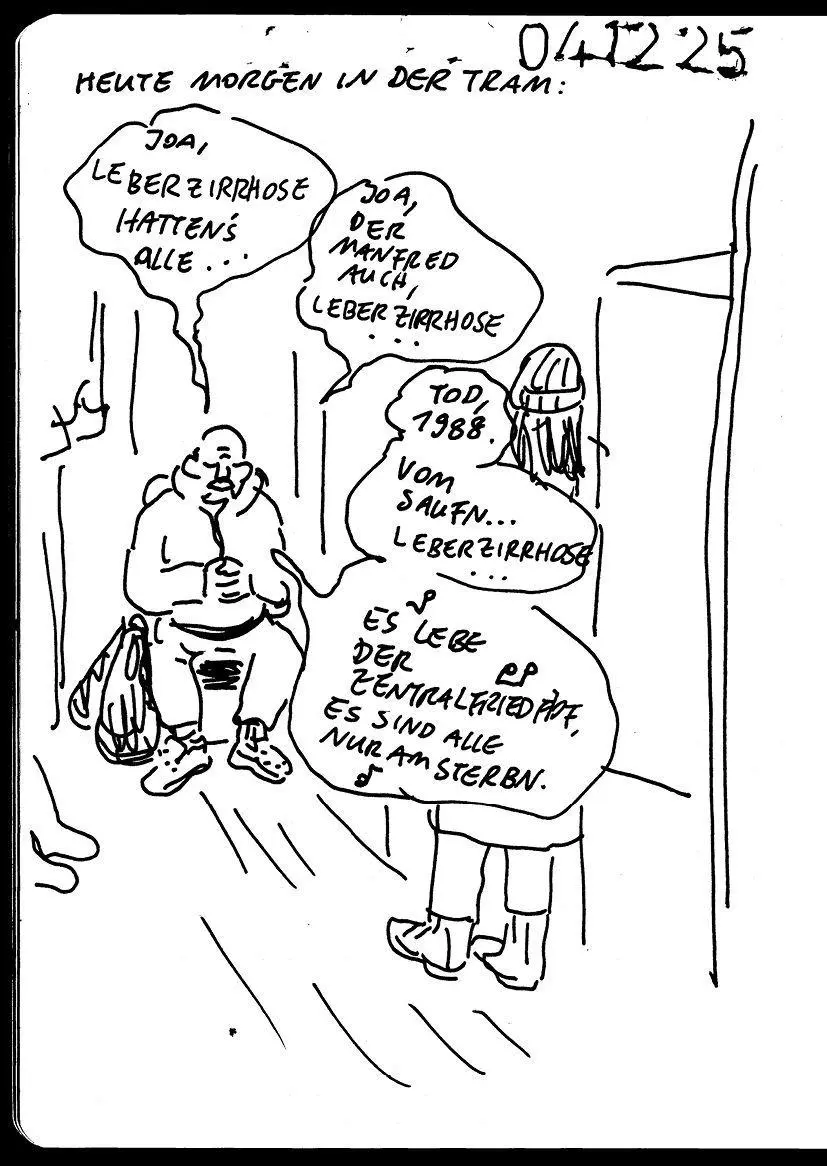 04.12.25
HEUTE MORGEN IN DER TRAM:
JOA,
LEBERZIRRHOSE
HATTEN'S
ALLE...
JOA,
DER
MANFRED
AUCH,
LEBERZIRRHOSE
...
TOD,
1988.
VOM
SAUFN...
LEBERZIRRHOSE
...
ES LEBE
DER
ZENTRALFRIEDHOF,
ES SIND ALLE
NUR AM STERBN.